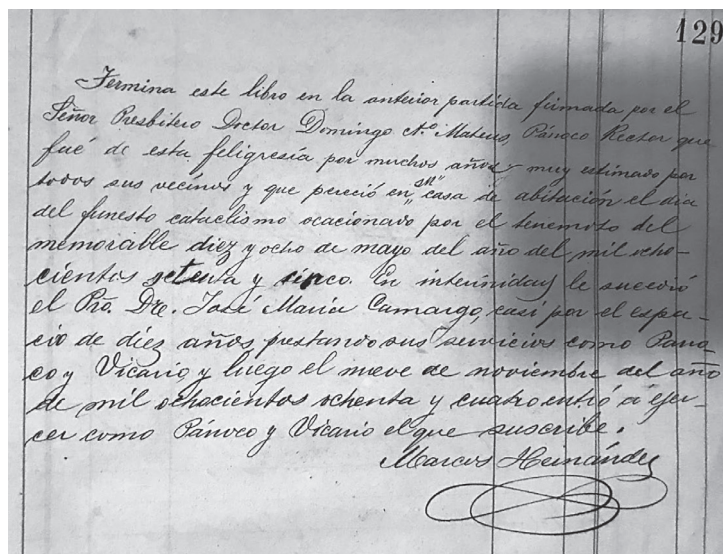 129
Termina este libro en la anterior partida firmada por el
Señor Presbítero Doctor Domingo A.º Mateus, Párroco Rector que
fué de esta feligresía por muchos años y muy estimado por
todos sus vecinos y que pereció en "su" casa de abitación el dia
del funesto cataclismo ocacionado por el terremoto del
memorable diez y ocho de mayo del año del mil ocho-
cientos setenta y sinco. En interinidad le sucedió
el Pro. Dr. José María Camargo, casi por el espa-
cio de diez años prestando sus servicios como Parro-
co y Vicario, y luego el nueve de noviembre del año
de mil ochocientos ochenta y cuatro entró á ejer-
cer como Párroco y Vicario el que suscribe.
Marcos Hernández